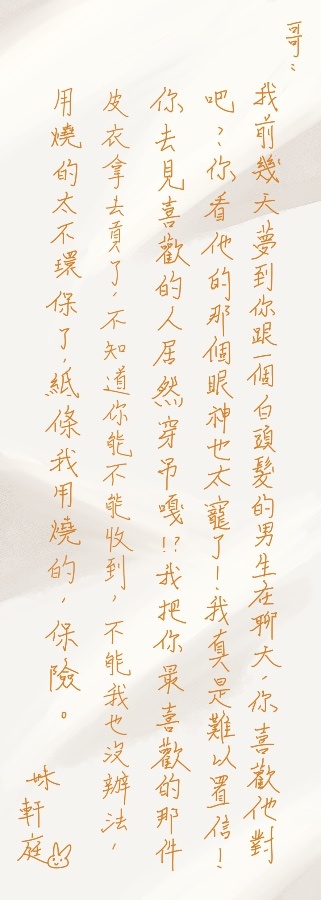 哥：
我前幾天夢到你跟一個白頭髮的男生在聊天，你喜歡他對
吧？你看他的那個眼神也太寵了！我真是難以置信！
你去見喜歡的人居然穿吊嘎!?我把你最喜歡的那件
皮衣拿去賣了，不知道你能不能收到，不能我也沒辦法，
用燒的太不環保了，紙條我用燒的，保險。
妹
軒庭